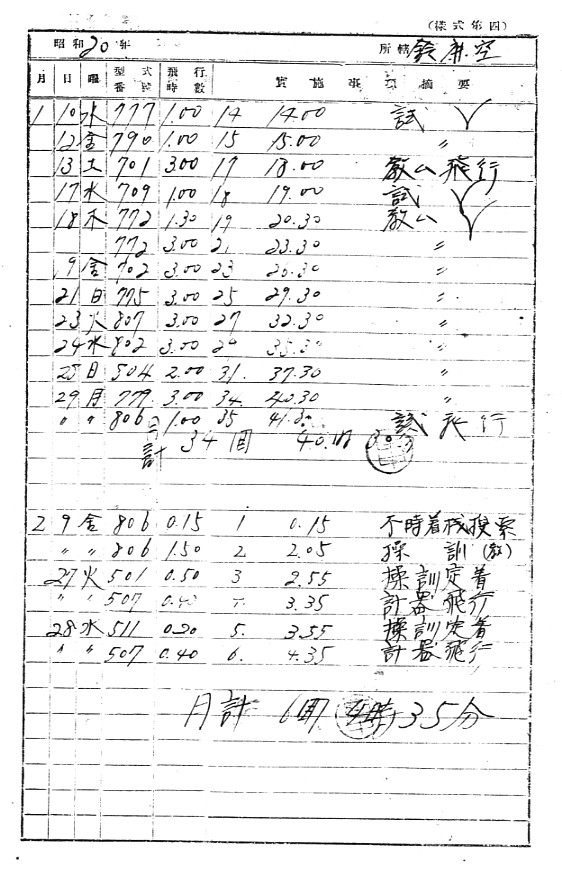 (樣式第四)
昭和20年 所轄 鈴鹿空
月 日 曜 型式番號 飛行時數 實施事項摘要
1 10 水 777 1.00 14 14.00 試
12 金 790 1.00 15 15.00 〃
13 土 701 3.00 17 18.00 教山飛行
17 水 709 1.00 18 19.00 試
18 木 772 1.30 19 20.30 教山
772 3.00 21 23.30 〃
19 金 702 3.00 23 26.30 〃
21 日 775 3.00 25 29.30 〃
23 火 807 3.00 27 32.30 〃
24 水 802 3.00 35.30 〃
28 日 504 2.00 31. 37.30 〃
29 月 779 3.00 34. 40.30 〃
〃 〃 806 1.00 35 41.30 試飛行
計 34回 40.
2 9 金 806 0.15 1 0.15 不時着機捜索
〃 〃 806 1.50 2 2.05 操訓(教)
27 火 501 0.50 3 2.55 操訓定着
〃 〃 507 0.40 3.35 計器飛行
28 水 511 0.20 5. 3.55 操訓定着
〃 〃 507 0.40 6. 4.35 計器飛行
月計 6回 4時35分